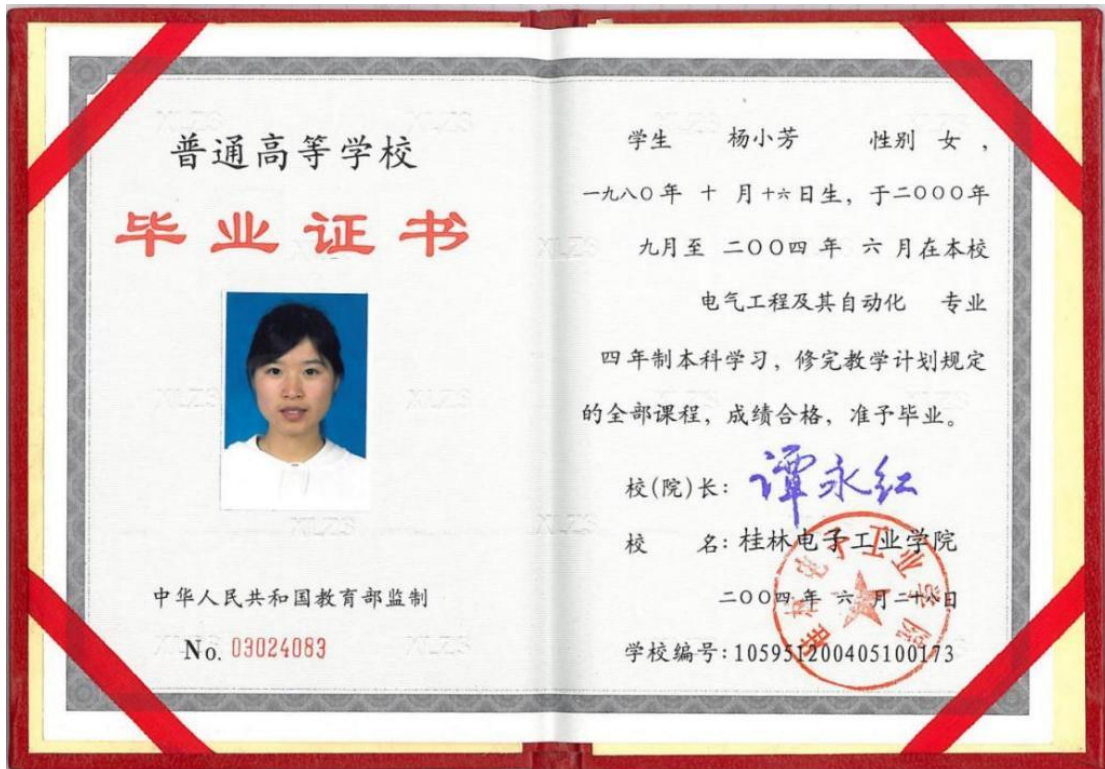 普通高等学校
毕业证书
中华人民共和国教育部监制
No. 03024083
学生 杨小芳 性别 女，
一九八〇年 十 月十六日生，于二〇〇〇年
九月至 二〇〇四 年 六 月在本校
电气工程及其自动化 专业
四年制本科学习，修完教学计划规定
的全部课程，成绩合格，准予毕业。
校(院)长：谭永红
校 名：桂林电子工业学院
二〇〇四 年 六 月二十八日
学校编号：105951200405100173
桂林电子工业学院